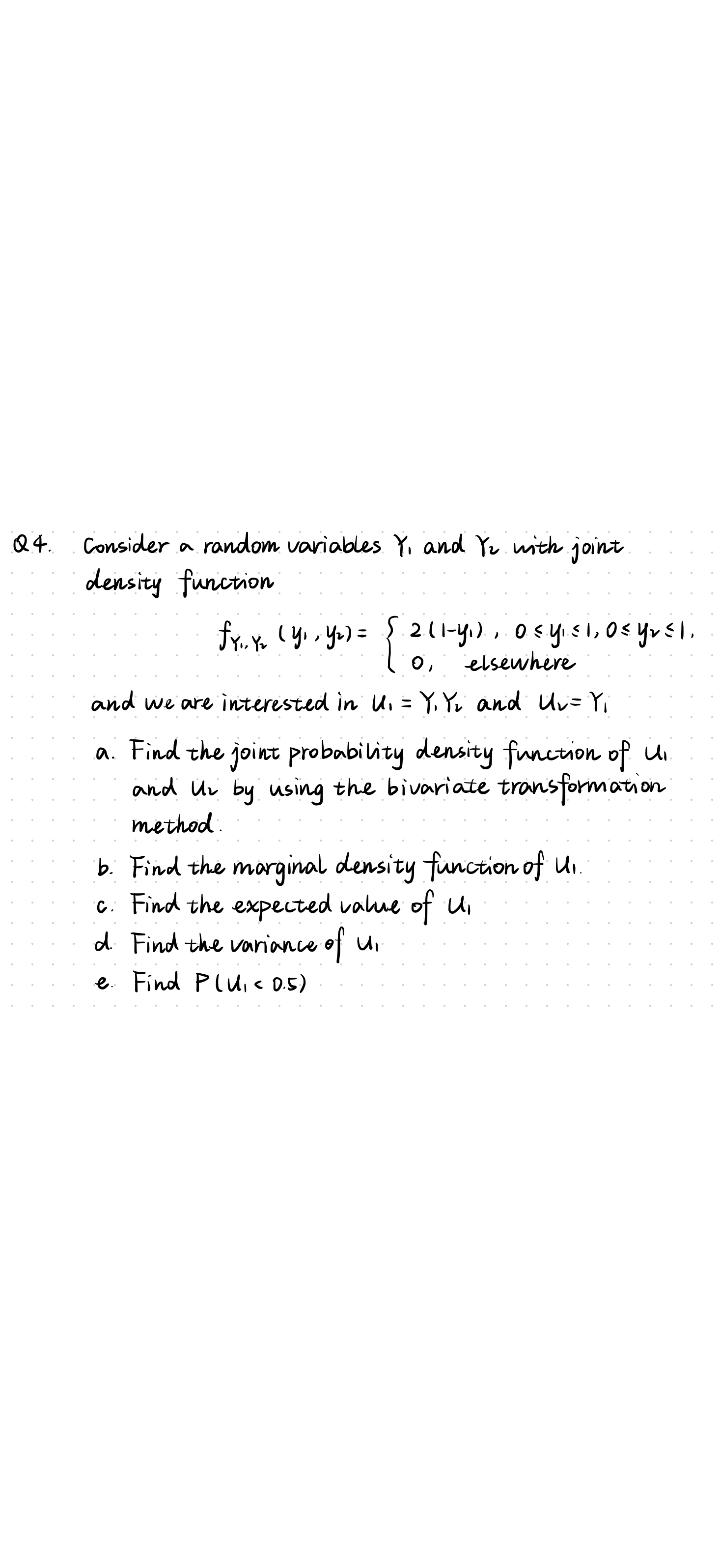 Q4. Consider a random variables Y₁ and Y₂ with joint
density function
f_{Y₁,Y₂} (y₁, y₂) = { 2(1-y₁), 0≤y₁≤1, 0≤y₂≤1,
0, elsewhere
and we are interested in U₁ = Y₁Y₂ and U₂ = Y₁
a. Find the joint probability density function of U₁
and U₂ by using the bivariate transformation
method.
b. Find the marginal density function of U₁.
c. Find the expected value of U₁
d. Find the variance of U₁
e. Find P(U₁ < 0.5)